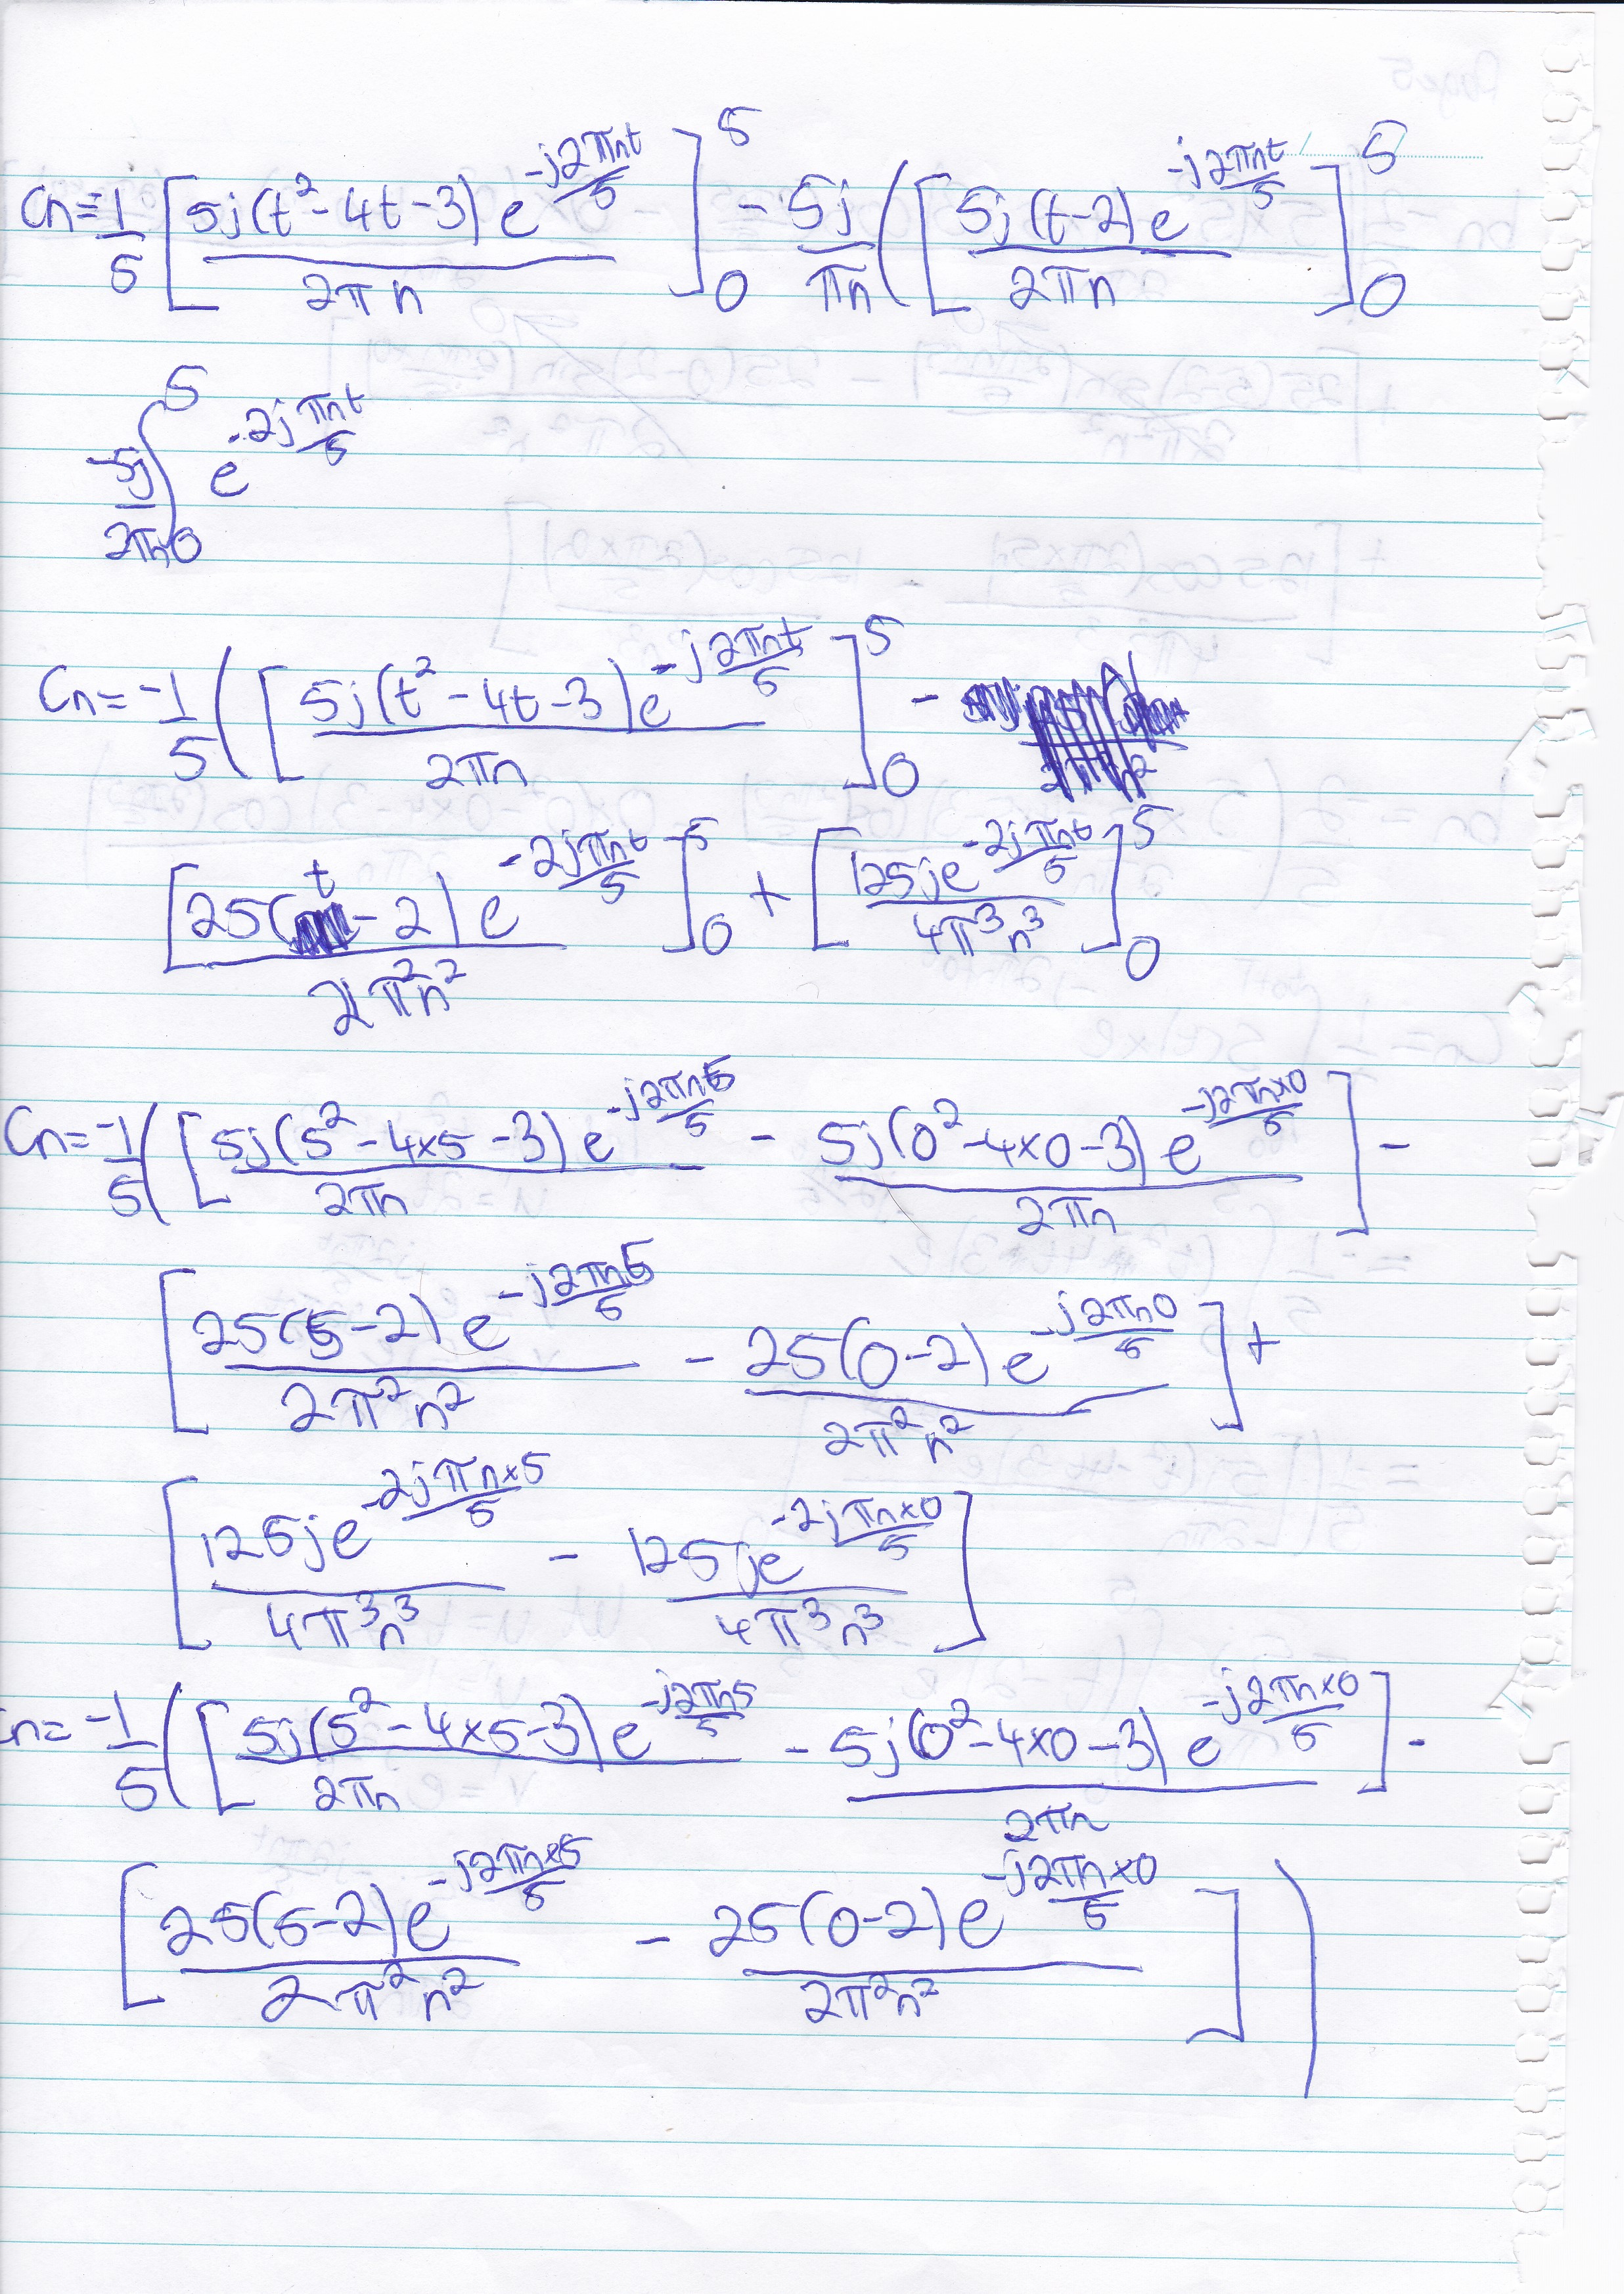 Cn = 1/5 [5j(t² - 4t - 3) e^(-j2πnt/5) / 2πn]₀⁵ - 5j/πn ([5j(t-2) e^(-j2πnt/5) / 2πn]₀⁵
-5j/2πn ∫₀⁵ e^(-2jπnt/5)
Cn = -1/5 ([5j(t² - 4t - 3) e^(-j2πnt/5) / 2πn]₀⁵ -
[25(t - 2) e^(-2jπnt/5) / 2π²n²]₀⁵ + [125je^(-2jπnt/5) / 4π³n³]₀⁵
Cn = -1/5 ([5j(5² - 4×5 - 3) e^(-j2πn5/5) / 2πn - 5j(0² - 4×0 - 3) e^(-j2πn×0/5) / 2πn] -
[25(5 - 2) e^(-j2πn5/5) / 2π²n² - 25(0 - 2) e^(-j2πn0/5) / 2π²n²] +
[125je^(-2jπn×5/5) / 4π³n³ - 125je^(-2jπn×0/5) / 4π³n³]
Cn = -1/5 ([5j(5² - 4×5 - 3) e^(-j2πn5/5) / 2πn - 5j(0² - 4×0 - 3) e^(-j2πn×0/5) / 2πn] -
[25(5-2)e^(-j2πn×5/5) / 2π²n² - 25(0-2)e^(-j2πn×0/5) / 2π²n²])